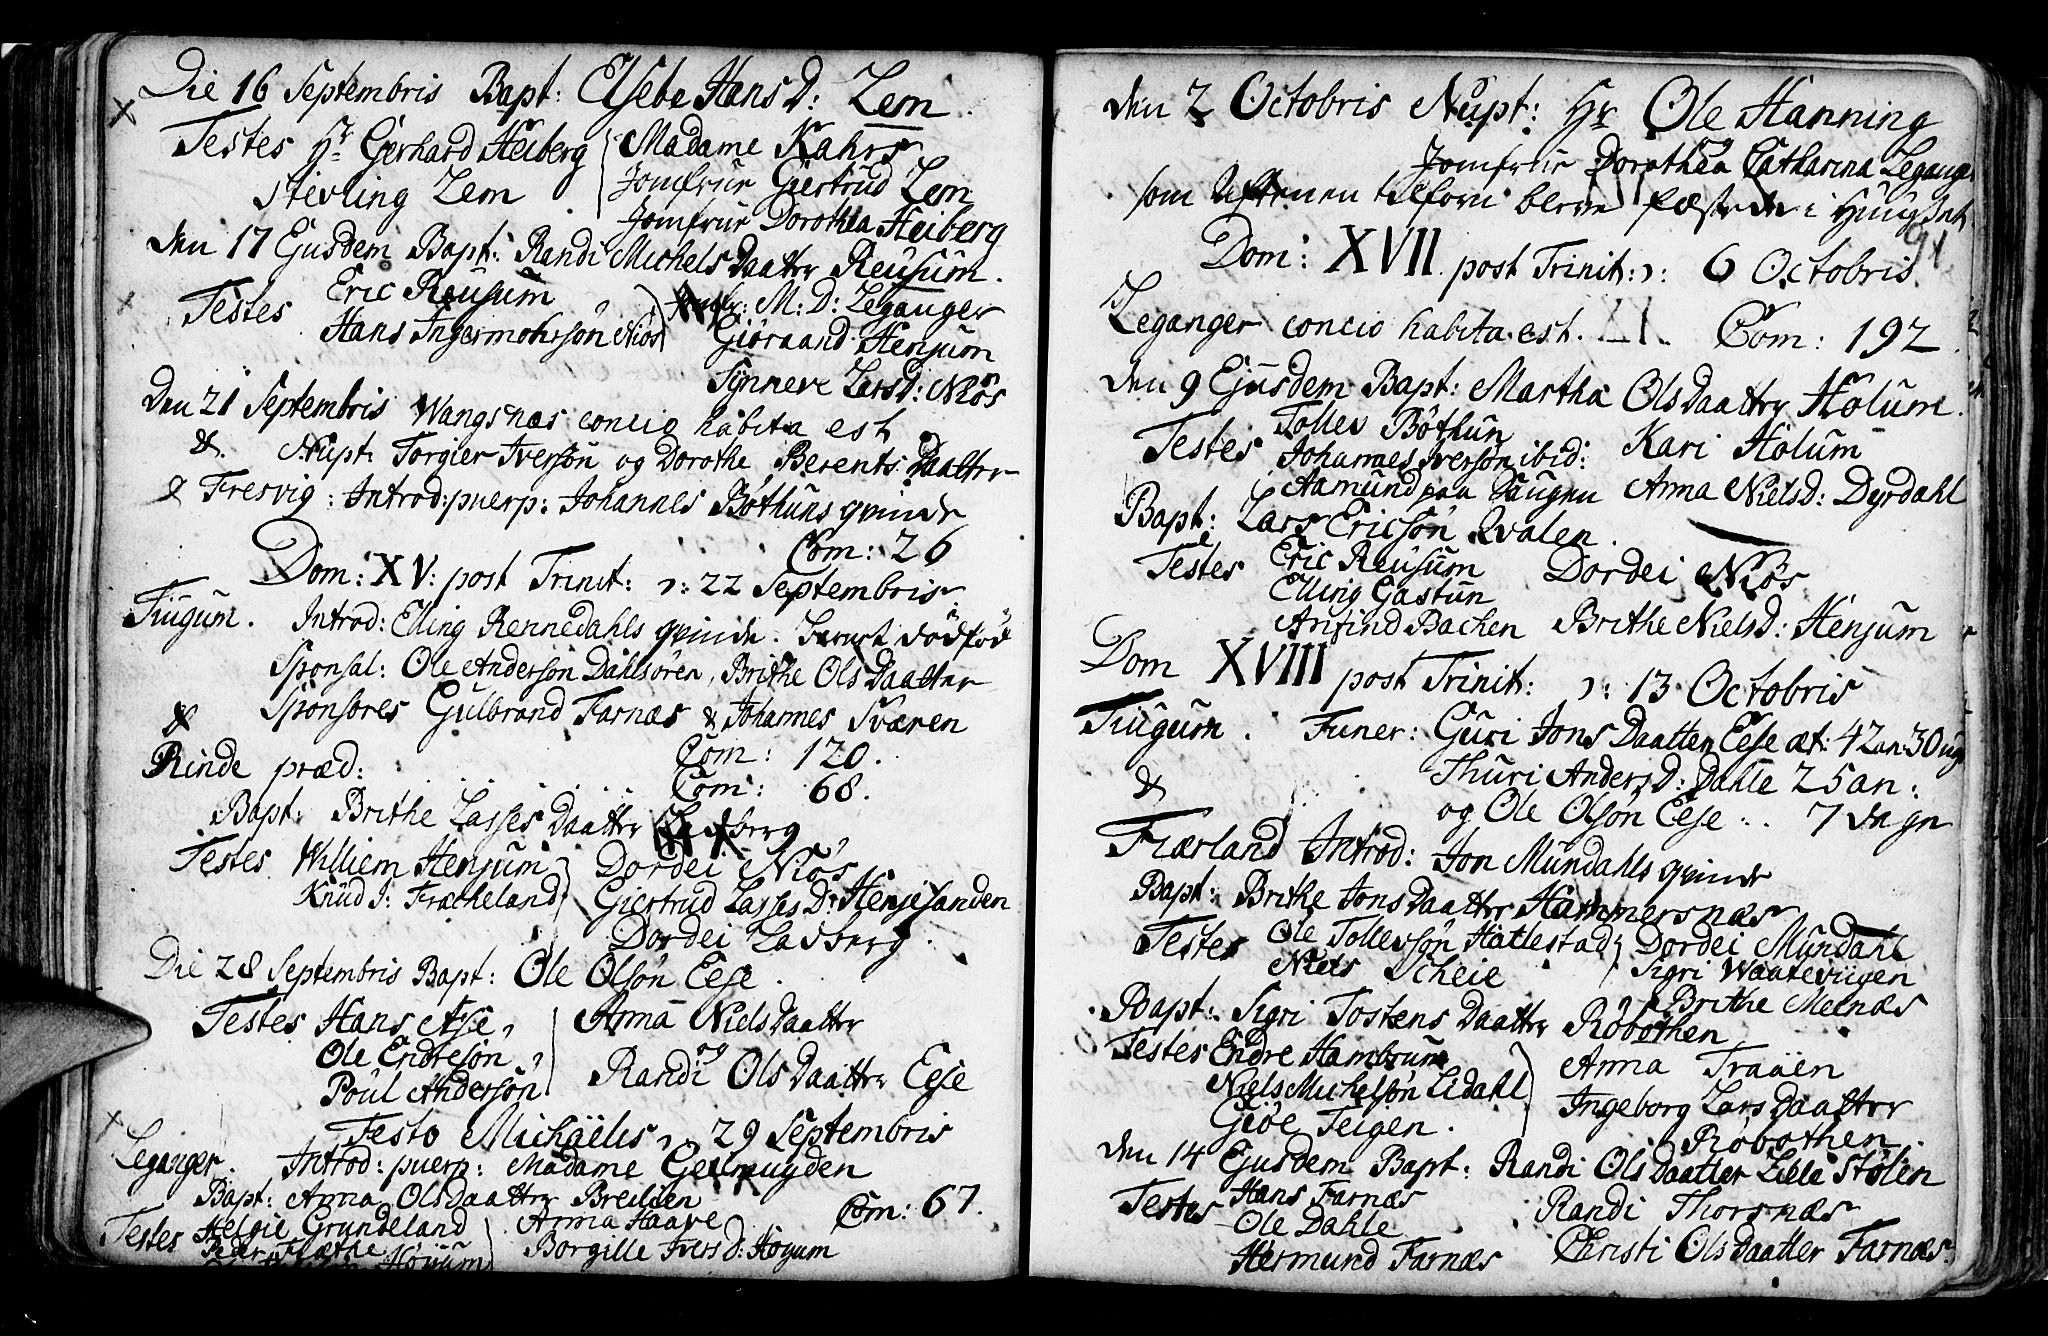 Die 16 Septembris Bapt: Elsebe Hans D: Lem.
Testes Hr Gerhard Heiberg Madame Kahrs
Stevling Lem Jomfrue Giertrud Lem
Jomfrue Dorothea Heiberg
Den 17 Ejusdem Bapt: Randi Michels Daatter Reusum.
Testes Eric Reusum M: D: Leganger
Hans Ingermohrsøn Niøs Giøraand Henjum
Synneve Lars d: Niøs
Den 21 Septembris Wangsnæs concio habita est
&. Nupt: Torgier Iversøn og Dorothe Berents Daatter
& Fresvig: Introd: puerp: Johannes Bøthuns qvinde
Com: 26
Dom: XV: post Trinit: ɔ: 22 Septembris.
Tiugum. Introd: Elling Rennedahls qvinde. Barnet dødfød
Sponsal: Ole Andersøn Dahlsøren, Brithe Ols Daatter
Sponsores Gulbrand Farnæs & Johannes Sværen
&
Com: 120.
Rinde præd: Com: 68.
Bapt: Brithe Lasses Daatter Ladberg
Testes Williem Henjum Dordei Niøs
Knud J: Fræcheland Giertrud Lasses D: Henjesanden
Dordei Ladberg.
Die 28 Septembris Bapt: Ole Olsøn Eese.
Testes Hans Ase, Anna Niels Daatter
Ole Endresøn, og
Poul Andersøn Randi Ols Daatter Eese
Festo Michaëlis ɔ: 29 Septembris
Leganger. Introd: puerp: Madame Gelmuyden
Bapt: Anna Ols Daatter Breilien Com: 67.
Testes Helgie Grundeland Anna Haave
Peder Flæthe Borgille Ivers d: Høyum
Høyum
Den 2 Octobris Nupt: Hr Ole Hanning
og
Jomfrue Dorothea Catharina Leganger
som Aftenen tilforn bleve fæstede i Huuset
91
Dom: XVII post Trinit: ɔ: 6 Octobris.
Leganger concio habita est. Com: 192.
Den 9 Ejusdem Bapt: Martha Ols Daatter Holum.
Testes Tollev Bøthun Kari Holum
Johannes Iversøn ibid:
Aamund paa Haugen Anna Niels d: Dyrdahl
Bapt: Lars Ericsøn Qvalen.
Testes Eric Reusum Dordei Niøs
Elling Gastun
Arnfind Bachen Brithe Niels d: Henjum
Dom XVIII post Trinit: ɔ: 13 Octobris
Tiugum. Funer: Guri Jons Daatter Eese æt: 42 an: 30 ug
& Thuri Anders d: Dahle 25 an:
og Ole Olsøn Eese .. 7 Dage
Fiærland Introd: Jon Mundahls qvinde
Bapt: Brithe Jons Daatter Hammersnæs
Testes Ole Tollevsøn Hatlestad Dordei Mundahl
Niels Scheie Sigri Waatevigen
Brithe Melnæs
Bapt: Sigri Tostens Daatter Røbothen
Testes Endre Hambrum Anna Traaen
Niels Michelsøn Lidahl Ingeborg Lars Daatter
Giøe Teigen. Røbothen.
Den 14 Ejusdem Bapt: Randi Ols Daatter Lille Stølen
Testes Hans Farnæs Randi Thorsnæs
Ole Dahle
Hermund Farnæs Christi Ols Daatter Farnæs.